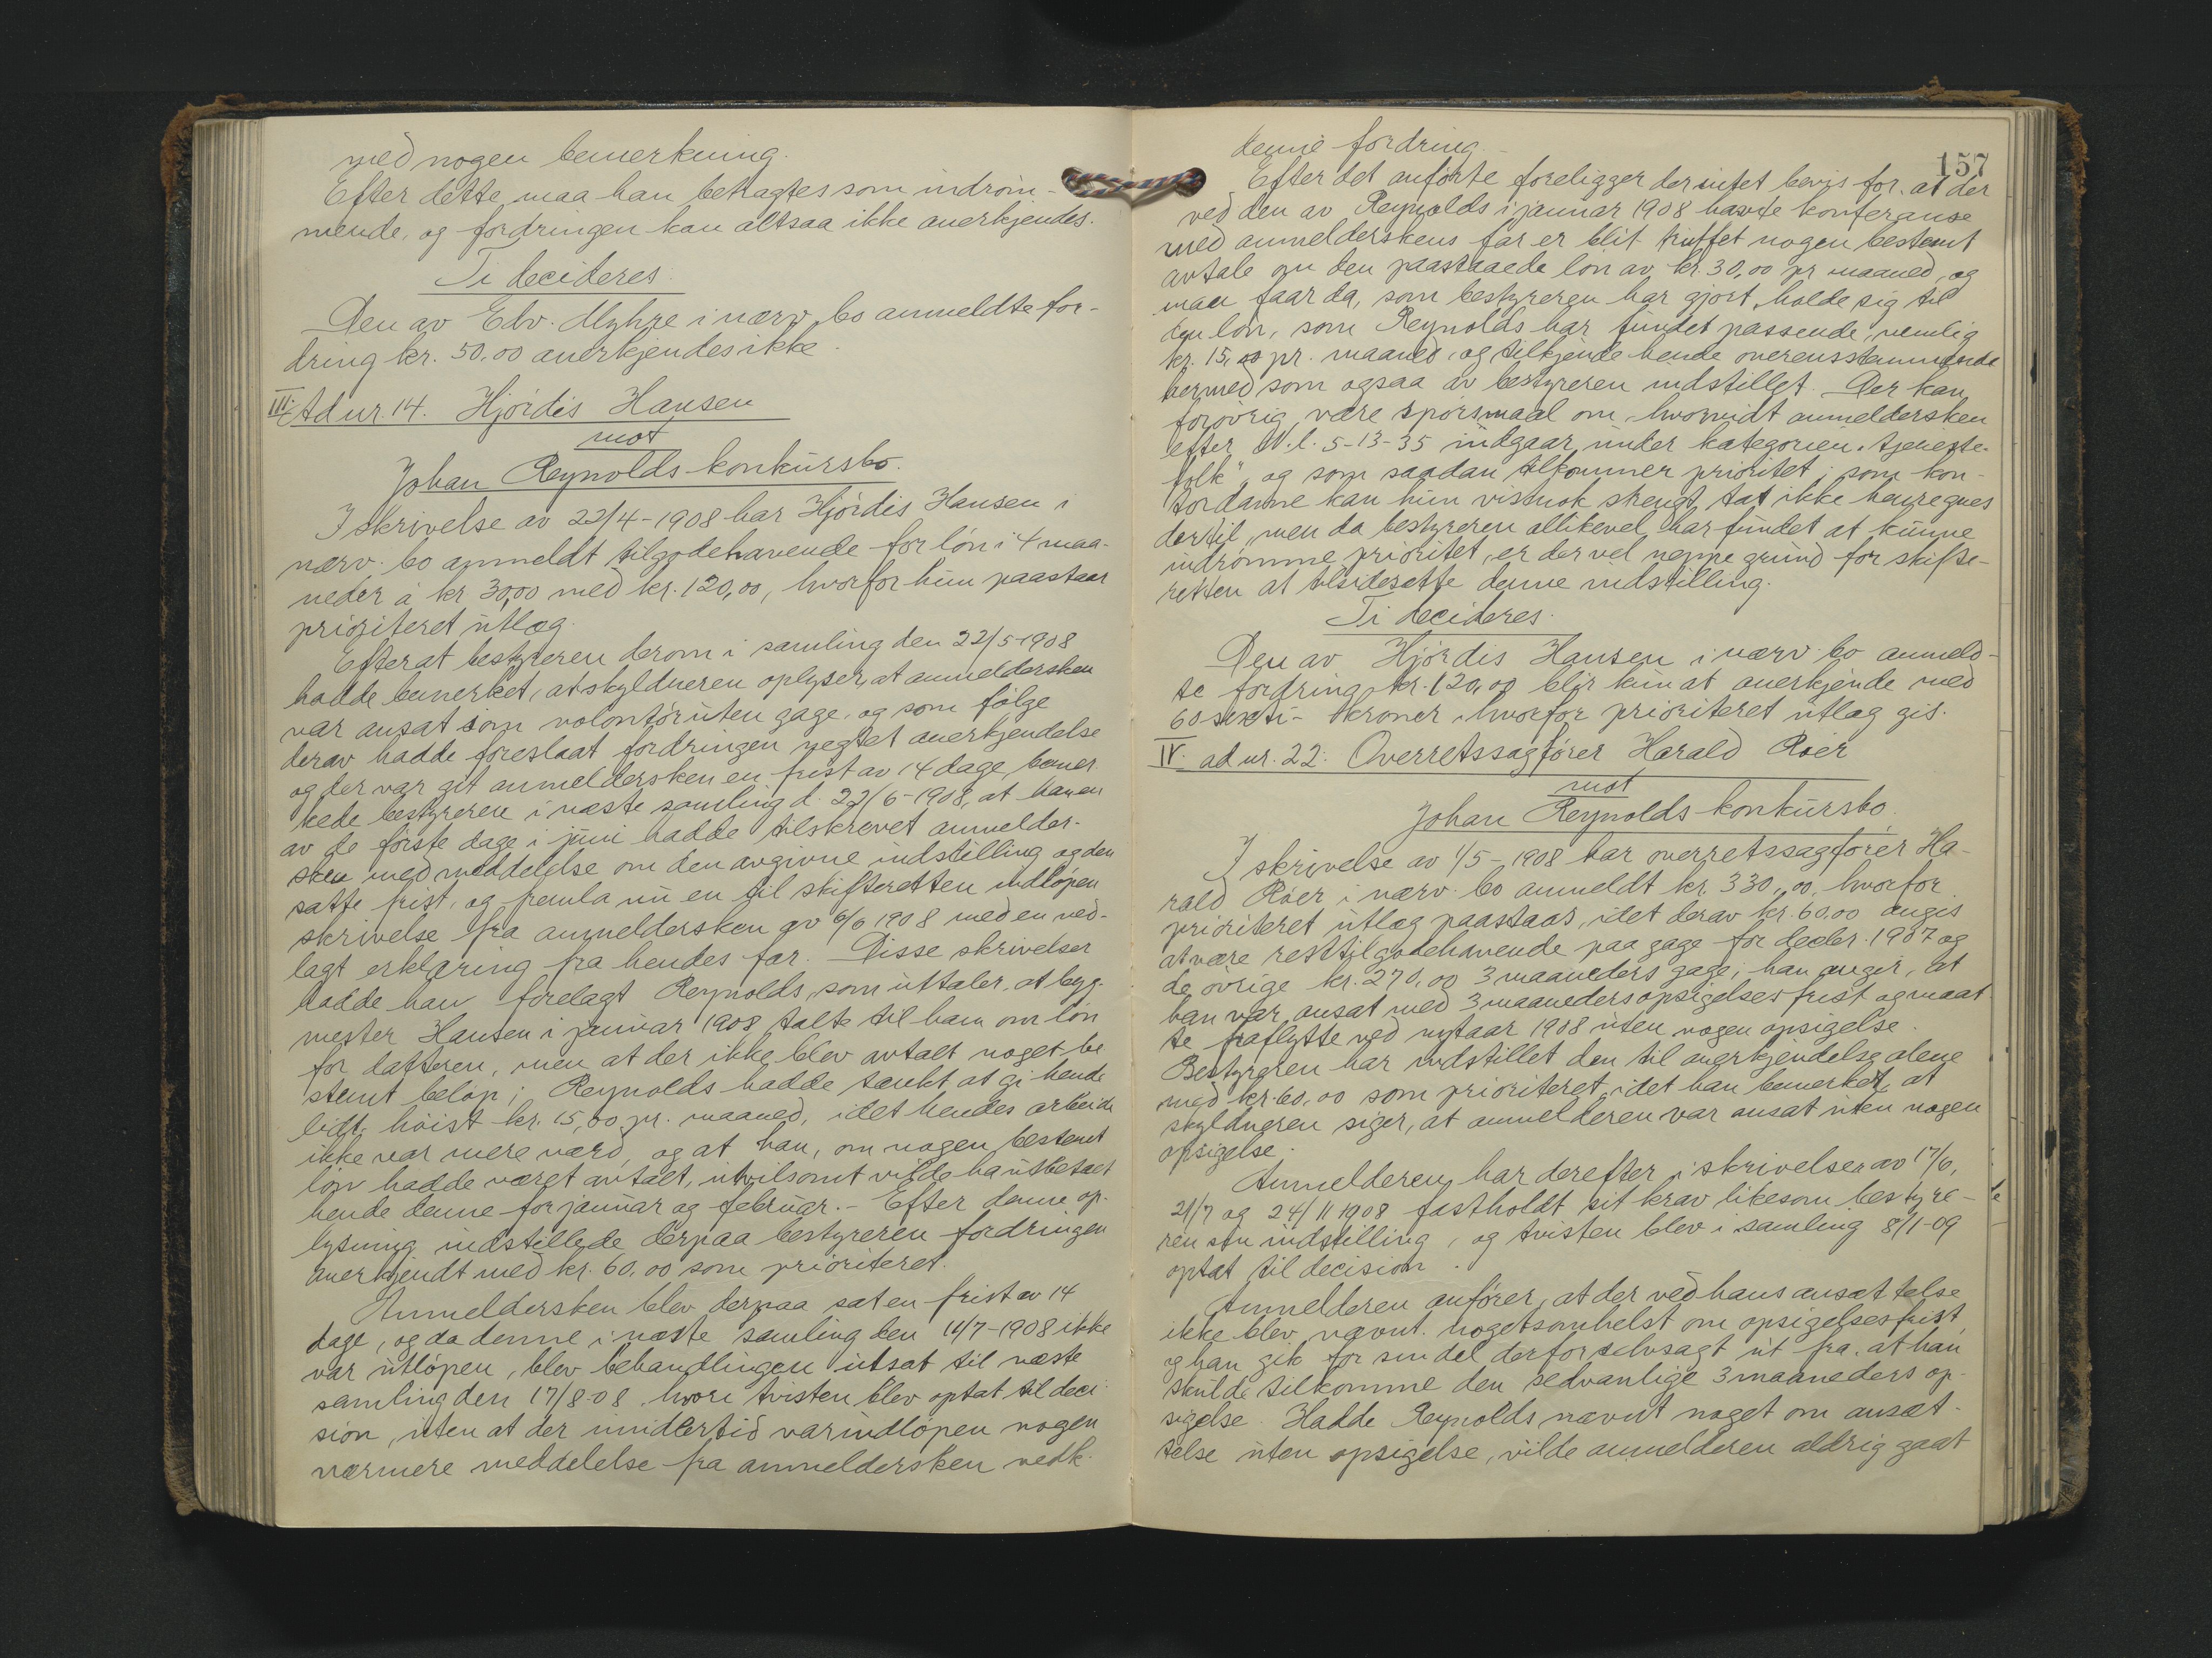 med nogen bemerkning.
Efter dette maa han betragtes som indrøm-
mende, og fordringen kan altsaa ikke anerkjendes.
Ti decideres.
Den av Edv. Myhre i nærv. bo anmeldte for-
dring kr. 50,00 anerkjendes ikke.
III. Ad nr 14. Hjördis Hansen
mot
Johan Reynolds konkursbo.
I skrivelse av 22/4-1908 har Hjördis Hansen i
nærv. bo anmeldt tilgodehavende for lön i 4 maa-
neder á kr 30,00 med kr. 120,00, hvorfor hun paastaar
prioriteret utlæg.
Efterat bestyreren derom i samling den 22/5-1908
hadde bemerket, at skyldneren oplyser, at anmeldersken
var ansat som volontör uten gage, og som fölge
derav hadde foreslaat fordringen negtet anerkjendelse
og der var git anmeldersken en frist av 14 dage, bemer-
kede bestyreren i næste samling d. 22/6-1908, at han en
av de förste dage i juni hadde tilskrevet anmelder-
sken med meddelelse om den avgivne indstilling og den
satte frist, og fremla nu en til skifteretten indlöpen
skrivelse fra anmeldersken av 6/6 1908 med en ved-
lagt erklæring fra hendes far. Disse skrivelser
hadde han forelagt Reynolds, som uttaler, at byg-
mester Hansen i januar 1908 talte til ham om lön
for datteren, men at der ikke blev avtalt noget be-
stemt belöp; Reynolds hadde tænkt at gi hende
litt, höist kr. 15,00 pr. maaned, idet hendes arbeide
ikke var mere værd, og at han, om nogen bestemt
lön hadde været avtalt, utvilsomt vilde ha utbetalt
hende denne for januar og februar. - Efter denne op-
lysning indstillede derpaa bestyreren fordringen
anerkjendt med kr. 60,00 som prioriteret.
Anmeldersken blev derpaa sat en frist av 14
dage, og da denne i næste samling den 11/7-1908 ikke
var utlöpen, blev behandlingen utsat til næste
samling den 17/8-08, hvori tvisten blev optat til deci-
sion, uten at der imidlertid var indlöpen nogen
nærmere meddelelse fra anmeldersken vedk.
157
denne fordring.
Efter det anförte foreligger der intet bevis for, at der
ved den av Reynolds i januar 1908 havte konferanse
med anmelderskens far er blit truffet nogen bestemt
avtale om den paastaaede lön av kr. 30,00 pr maaned, og
man faar da, som bestyreren har gjort, holde sig til
den lön, som Reynolds har fundet passende, nemlig
kr. 15,00 pr. maaned, og tilkjende hende overensstemmende
hermed som ogsaa av bestyreren indstillet. Der kan
forövrig være spörsmaal om, hvorvidt anmeldersken
efter N.L. 5-13-35 indgaar under kategorien „tjeneste-
folk" og som saadan tilkommer prioritet; som kon-
tordame kan hun vistnok strengt tat ikke henregnes
dertil, men da bestyreren allikevel har fundet at kunne
indrömme prioritet, er der vel neppe grund for skifte-
retten at tilsidesette denne indstilling.
Ti decideres.
Den av Hjördis Hansen i nærv. bo anmeld-
te fordring kr. 120,00 blir kun at anerkjende med
60 seksti- kroner, hvorfor prioriteret utlæg gis.
IV. ad nr. 22: Overretssagförer Harald Röer
mot
Johan Reynolds konkursbo.
I skrivelse av 1/5-1908 har overretssagförer Ha-
rald Röer i nærv. bo anmeldt kr. 330,00, hvorfor
prioriteret utlæg paastaas, idet derav kr. 60,00 angis
at være resttilgodehavende paa gage for decbr. 1907 og
de övrige kr. 270,00 3 maaneders gage; han angir, at
han var ansat med 3 maaneders opsigelsesfrist og maat-
te fraflytte ved nytaar 1908 uten nogen opsigelse.
Bestyreren har indstillet den til anerkjendelse alene
med kr. 60,00 som prioriteret, idet han bemerket, at
skyldneren siger, at anmelderen var ansat uten nogen
opsigelse.
Anmelderen har derefter i skrivelser av 17/6,
21/7 og 24/11 1908 fastholdt sit krav likesom bestyre-
ren sin indstilling, og tvisten blev i samling 8/1-09
optat til decision.
Anmelderen anförer, at der ved hans ansættelse
ikke blev nævnt nogetsomhelst om opsigelsesfrist
og han gik for sin del derfor selvsagt ut fra, at han
skulde tilkomme den sedvanlige 3 maaneders op-
sigelse. Hadde Reynolds nævnt noget om ansæt-
telse uten opsigelse, vilde anmelderen aldrig gaat